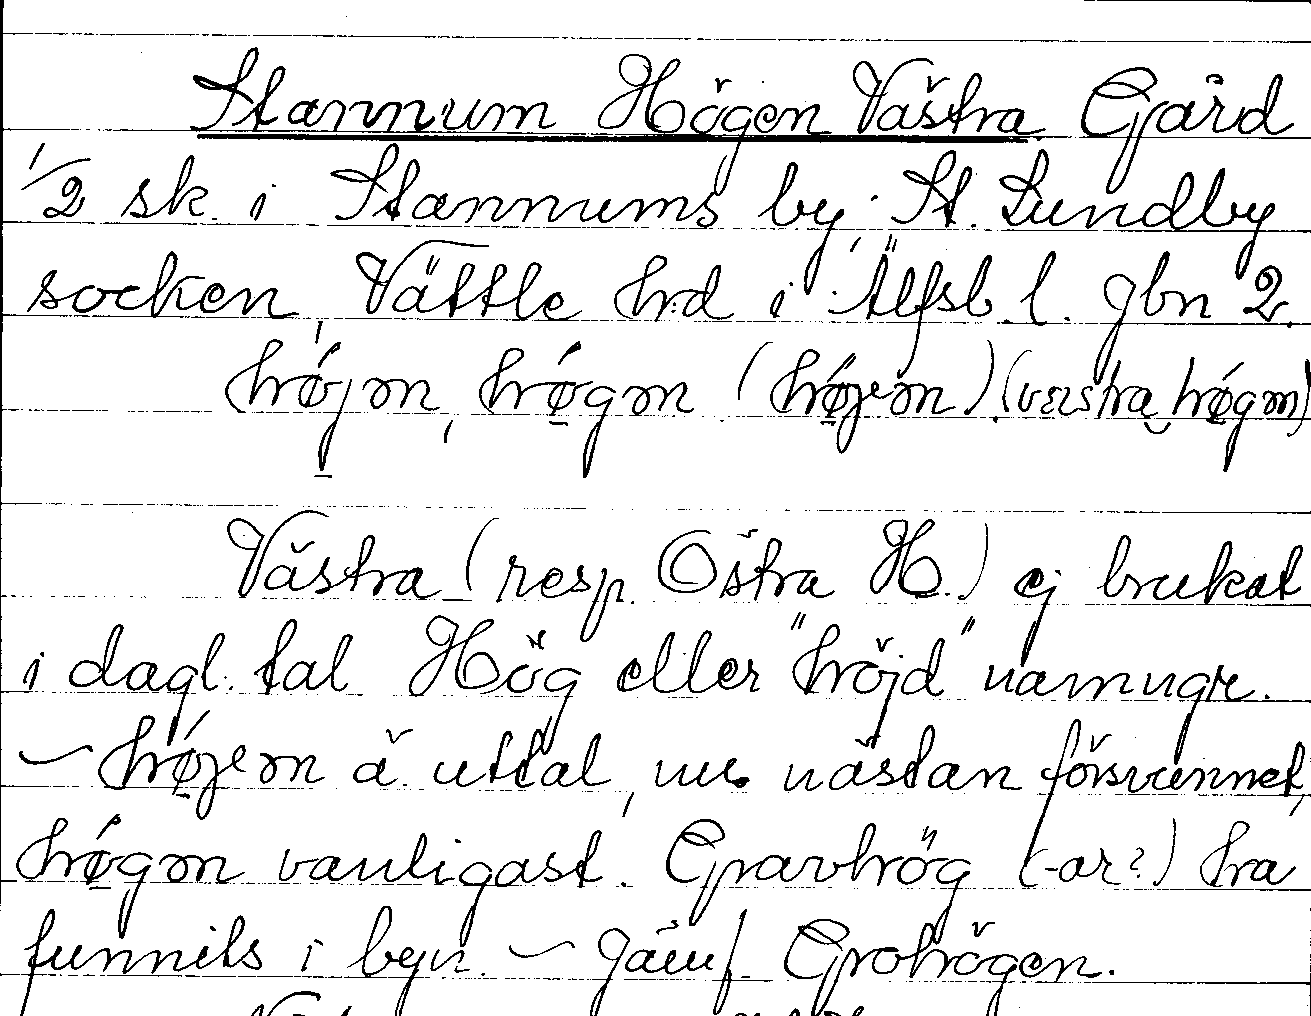 Stannum Högen Västra Gård
1/2 sk. i Stannums by. St. Lundby
socken, Vättle hd i Älfsb. l. gbn 2.
hǿjən, hǿgən (hǿjen) (vɛstra hǿgən)
Västra (resp. Östra H.) ej brukat
i dagl. tal Hög eller "höjd" namngr.
~ hǿjen ä. uttal, nu nästan försvunnet,
hǿgən vanligast. Gravhög (-ar?) ha
funnits i byn. ~ Jämf. Grohögen.